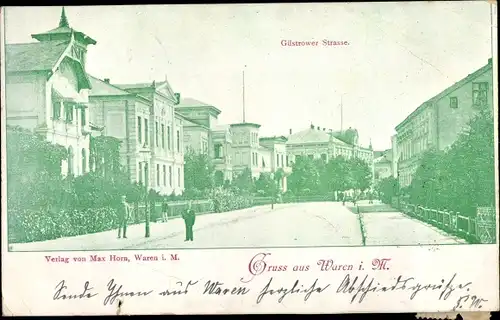 Güstrower Strasse.
Verlag von Max Horn, Waren i. M.
Gruss aus Waren i. M.
Sende Ihnen aus Waren herzliche Abschiedsgrüße.